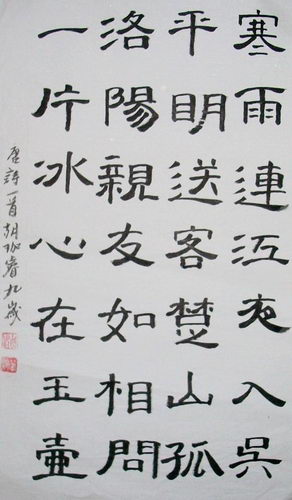 寒雨連江夜入吳
平明送客楚山孤
洛陽親友如相問
一片冰心在玉壺
唐詩一首胡睿九歲